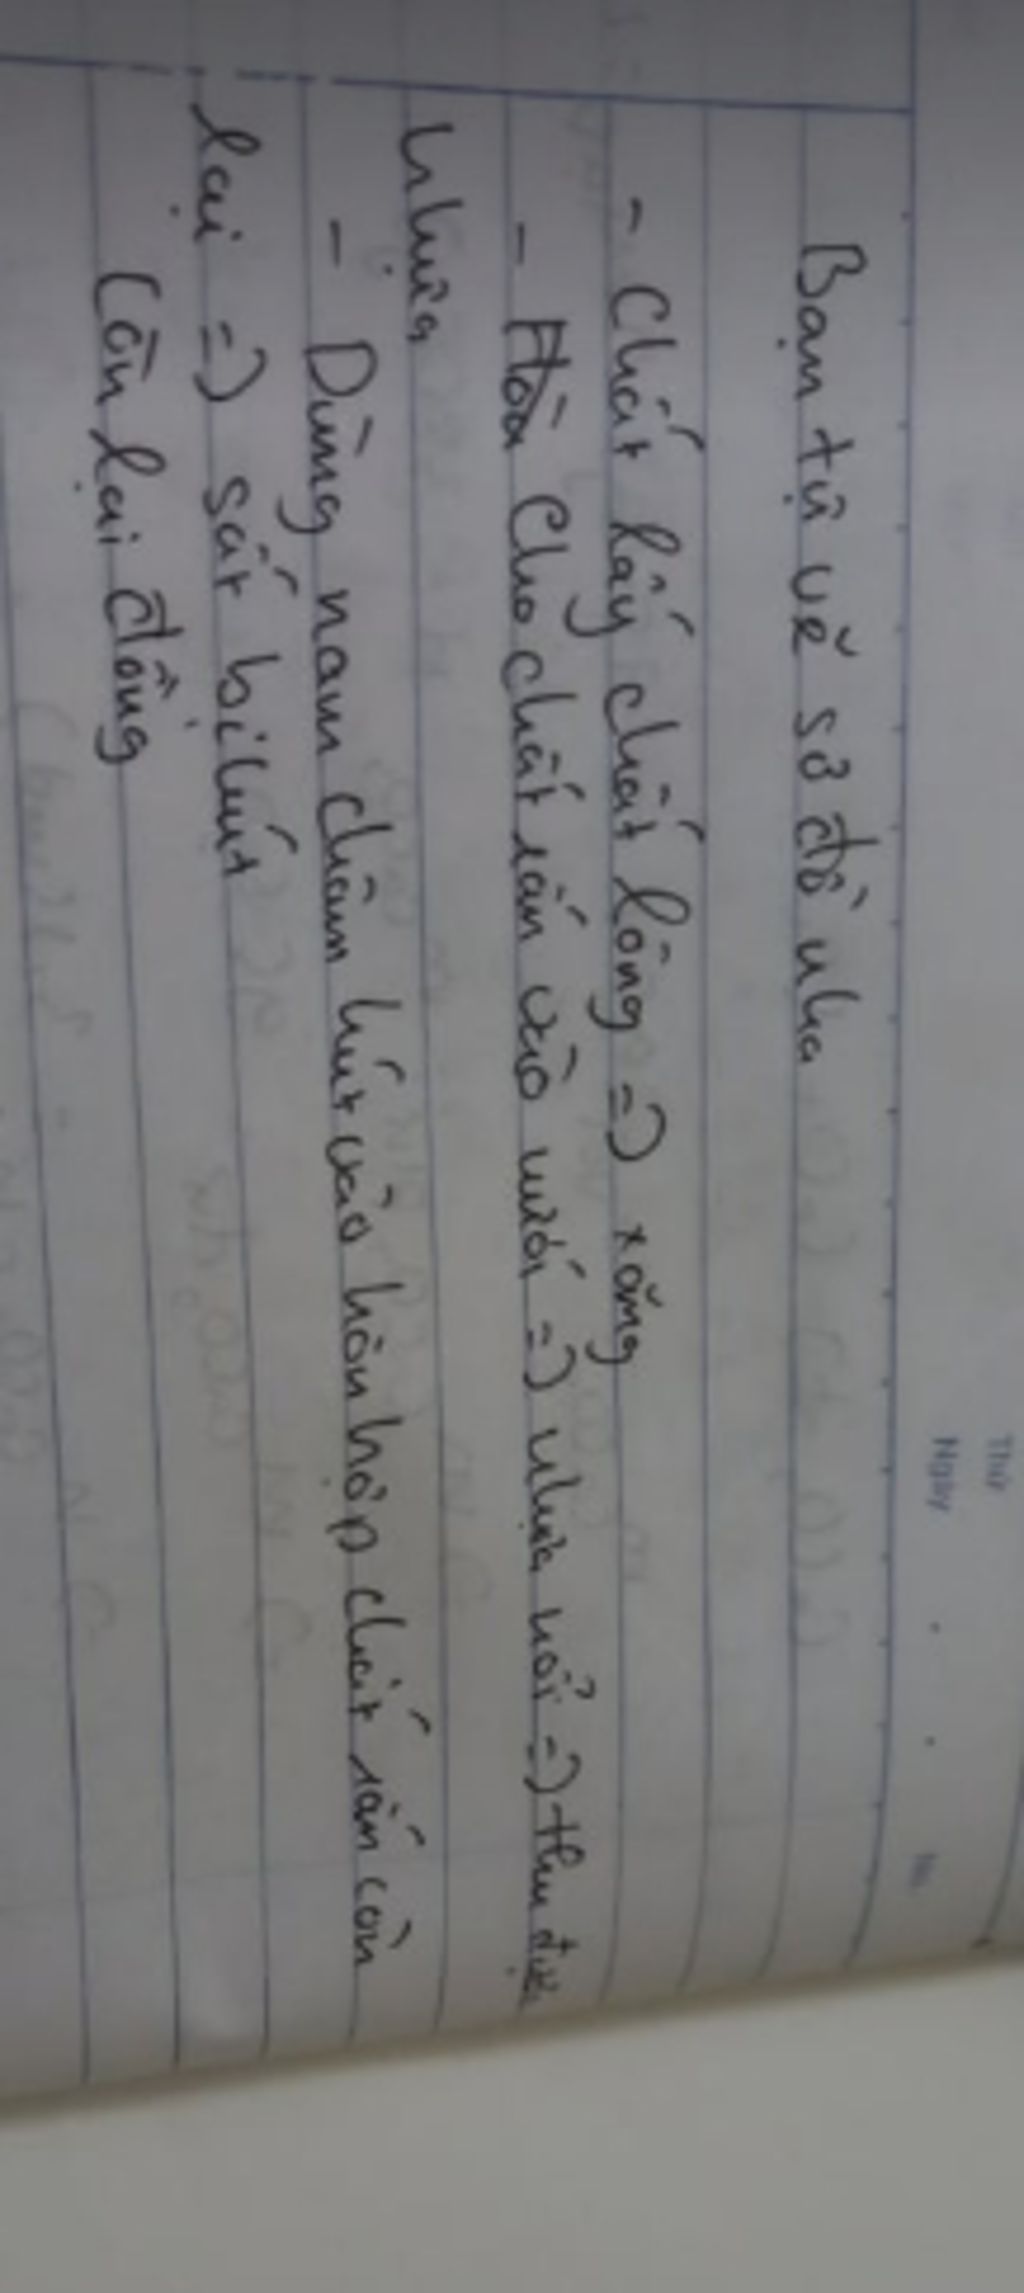 Thứ
Ngày . . No.
Bạn tự vẽ sơ đồ nha
- Chắt lấy chất lỏng => xăng
- Hòa cho chất rắn vào nước => nhựa nổi => thu được
nhựa
- Dùng nam châm hút vào hỗn hợp chất rắn còn
lại => sắt bị hút
Còn lại đồng